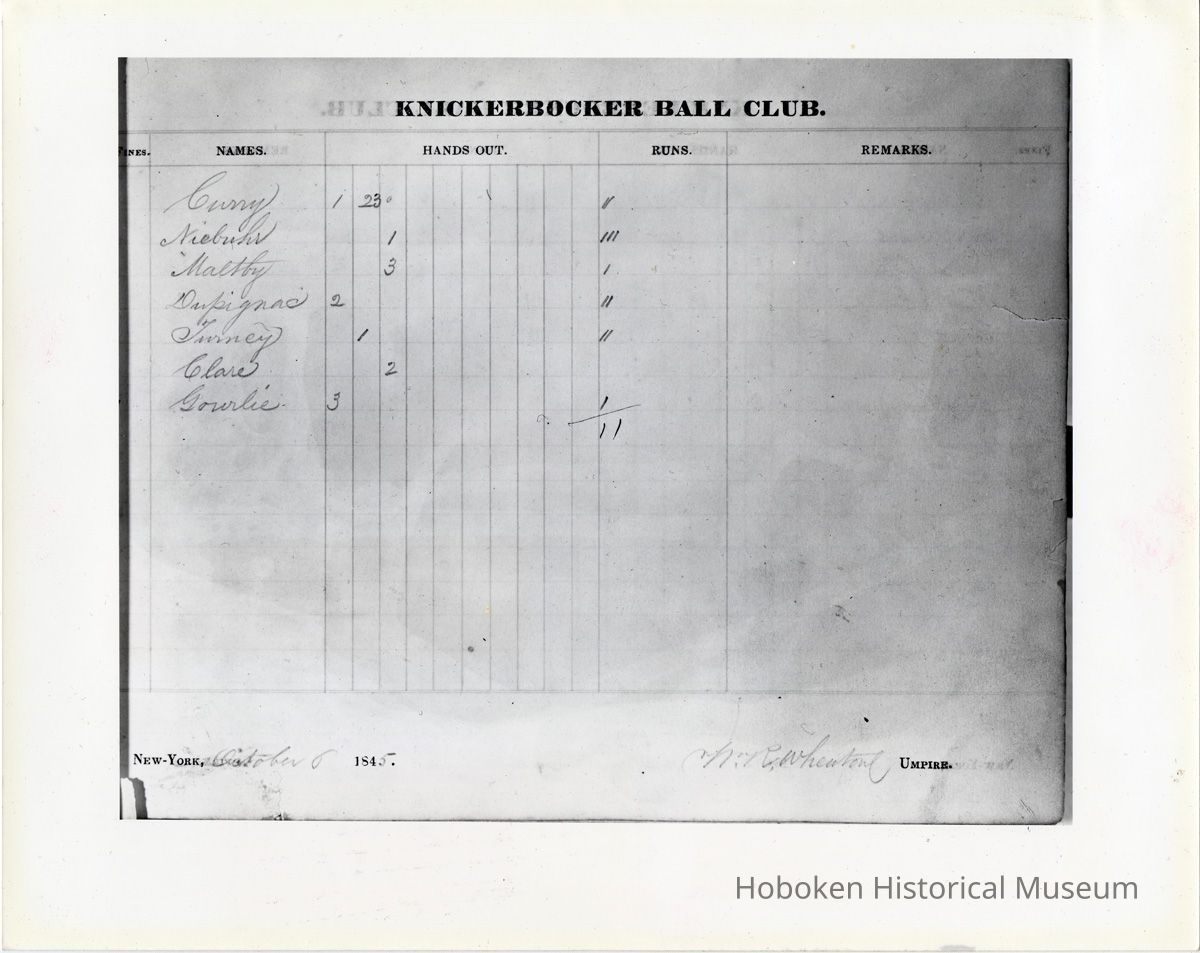 KNICKERBOCKER BALL CLUB.
FINES. NAMES. HANDS OUT. RUNS. REMARKS.
Curry 1 23 "
Niebuhr 1 "'
Maltby 3 '
Dupignac 2 "
Turney 1 "
Clare 2
Gourlie 3 1
11
NEW-YORK, October 6 1845. Wm. R. Wheaton UMPIRE.
Hoboken Historical Museum